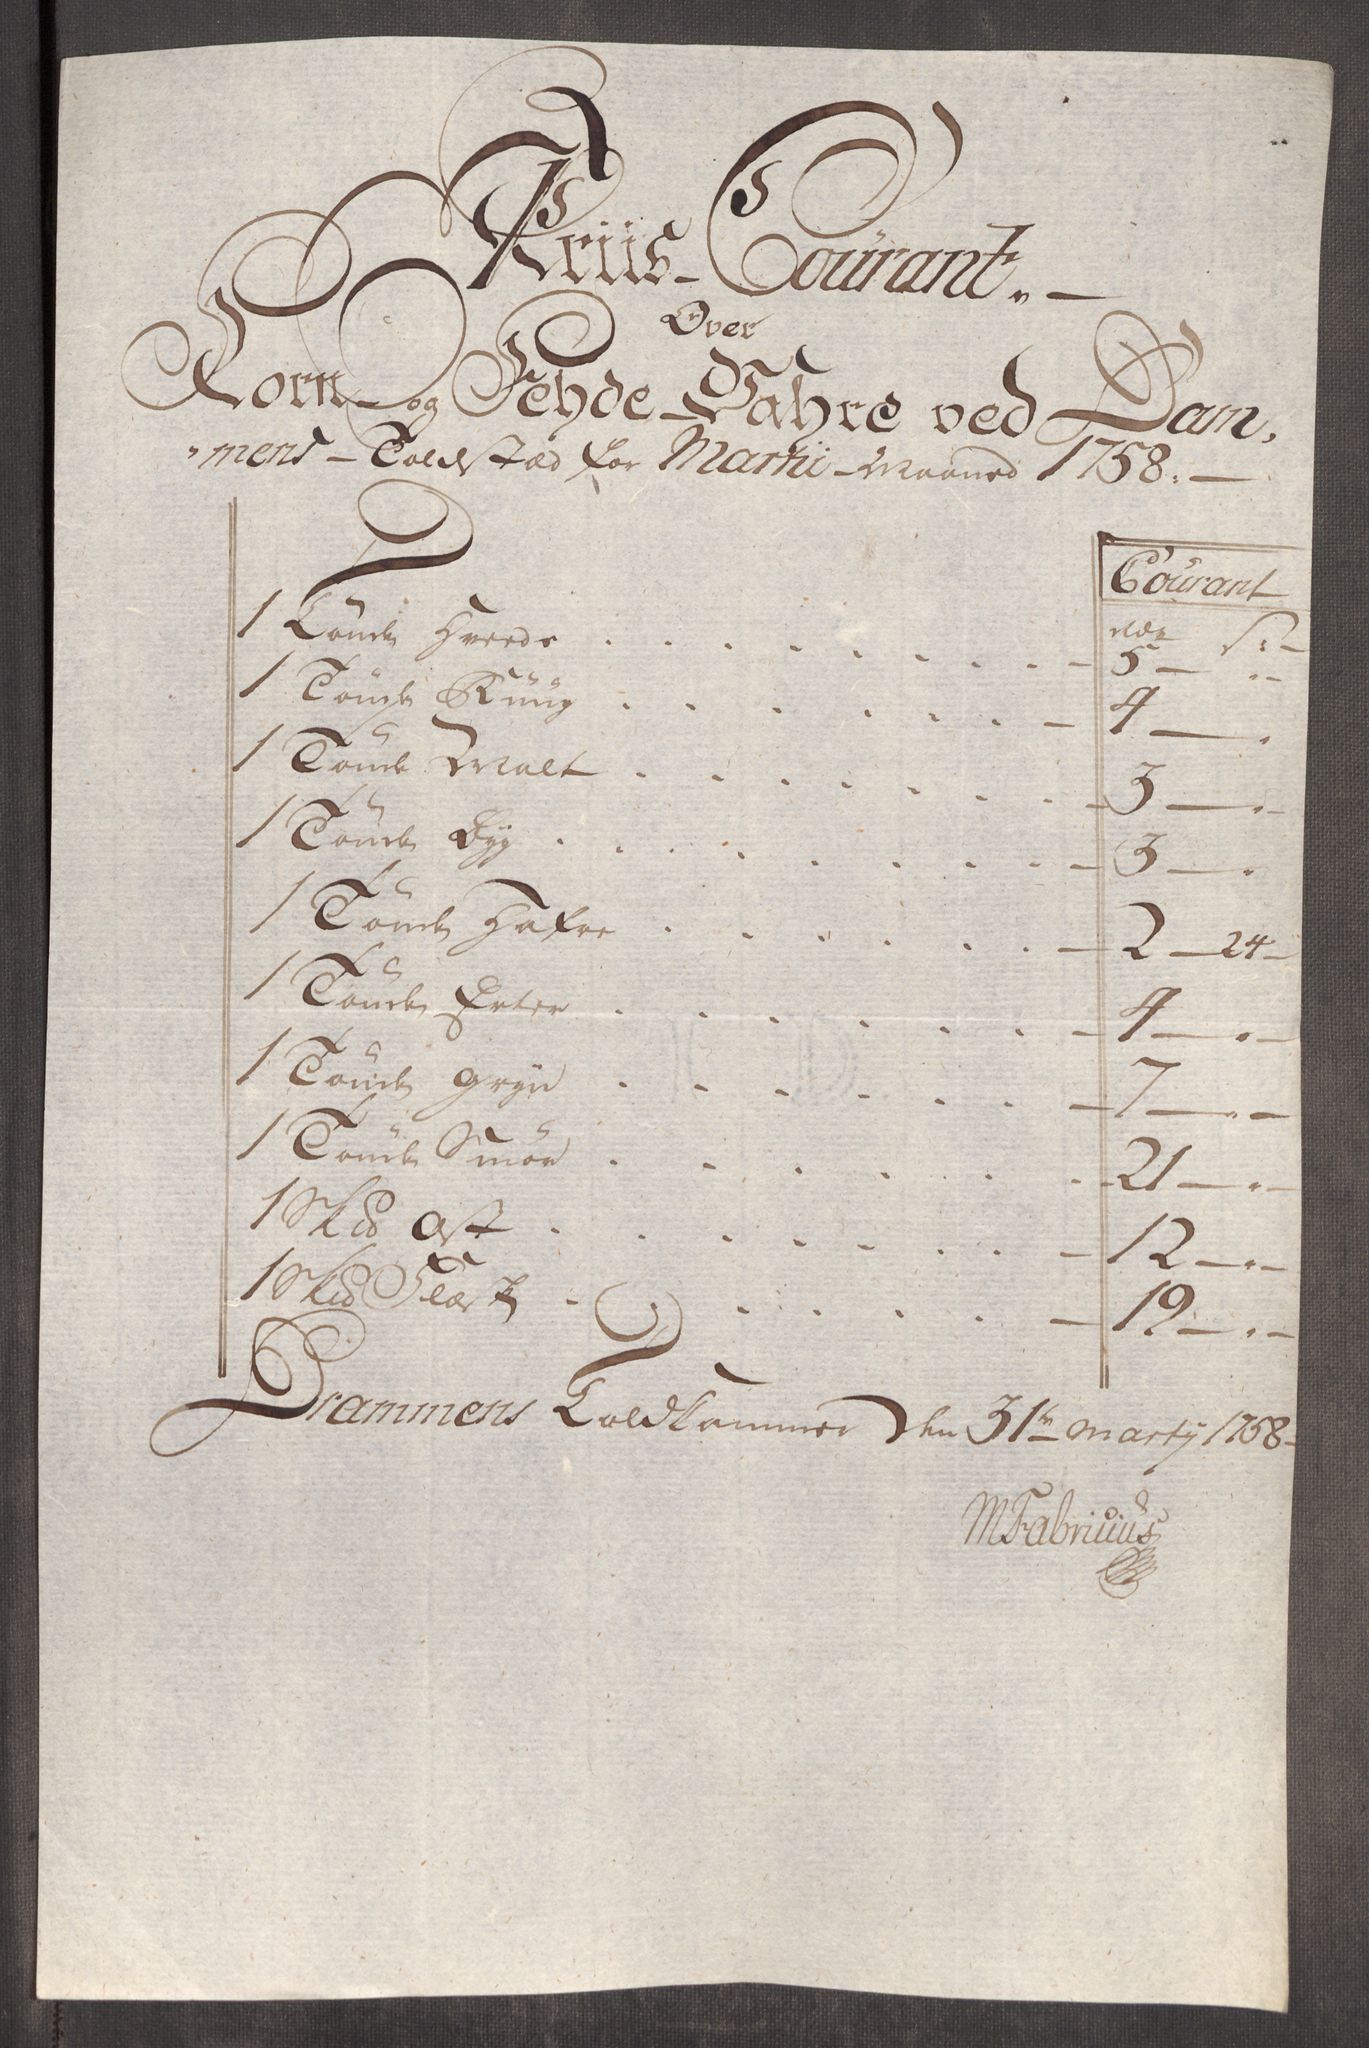 Priis-Courant
Over
Korn- og Fehde-Wahre ved Dram,
"mens-Toldstæd for Martii Maaned 1758.
Courant
rdr ß
1 Tönde Hveede 5 "
1 Tönde Rüüg 4 "
1 Tönde Malt 3 "
1 Tönde Byg 3 "
1 Tönde Hafre 2 24
1 Tönde Erter 4 "
1 Tönde gryn 7 "
1 Tönde Smör 21 "
1 Sk℔ Ost 12 "
1 Sk℔ Flæsk 19 "
Drammens Toldkammer den 31te Martij 1758
MFabricius